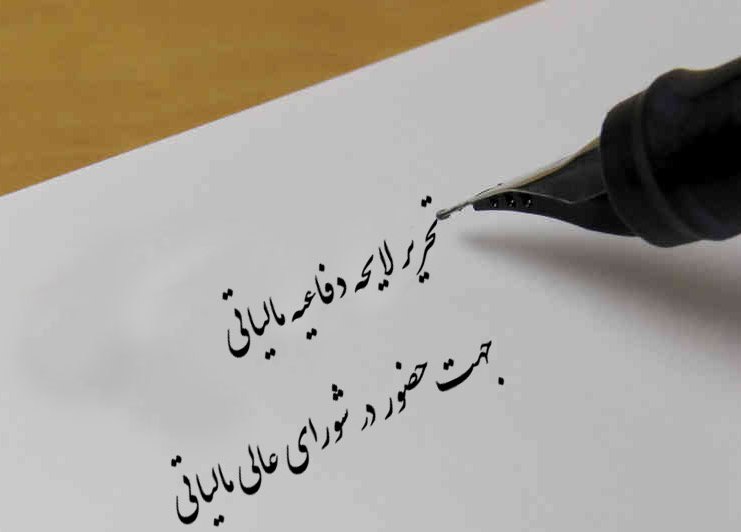 تحریر لایحه دفاعیه مالیاتی
جهت حضور در شورای عالی مالیاتی